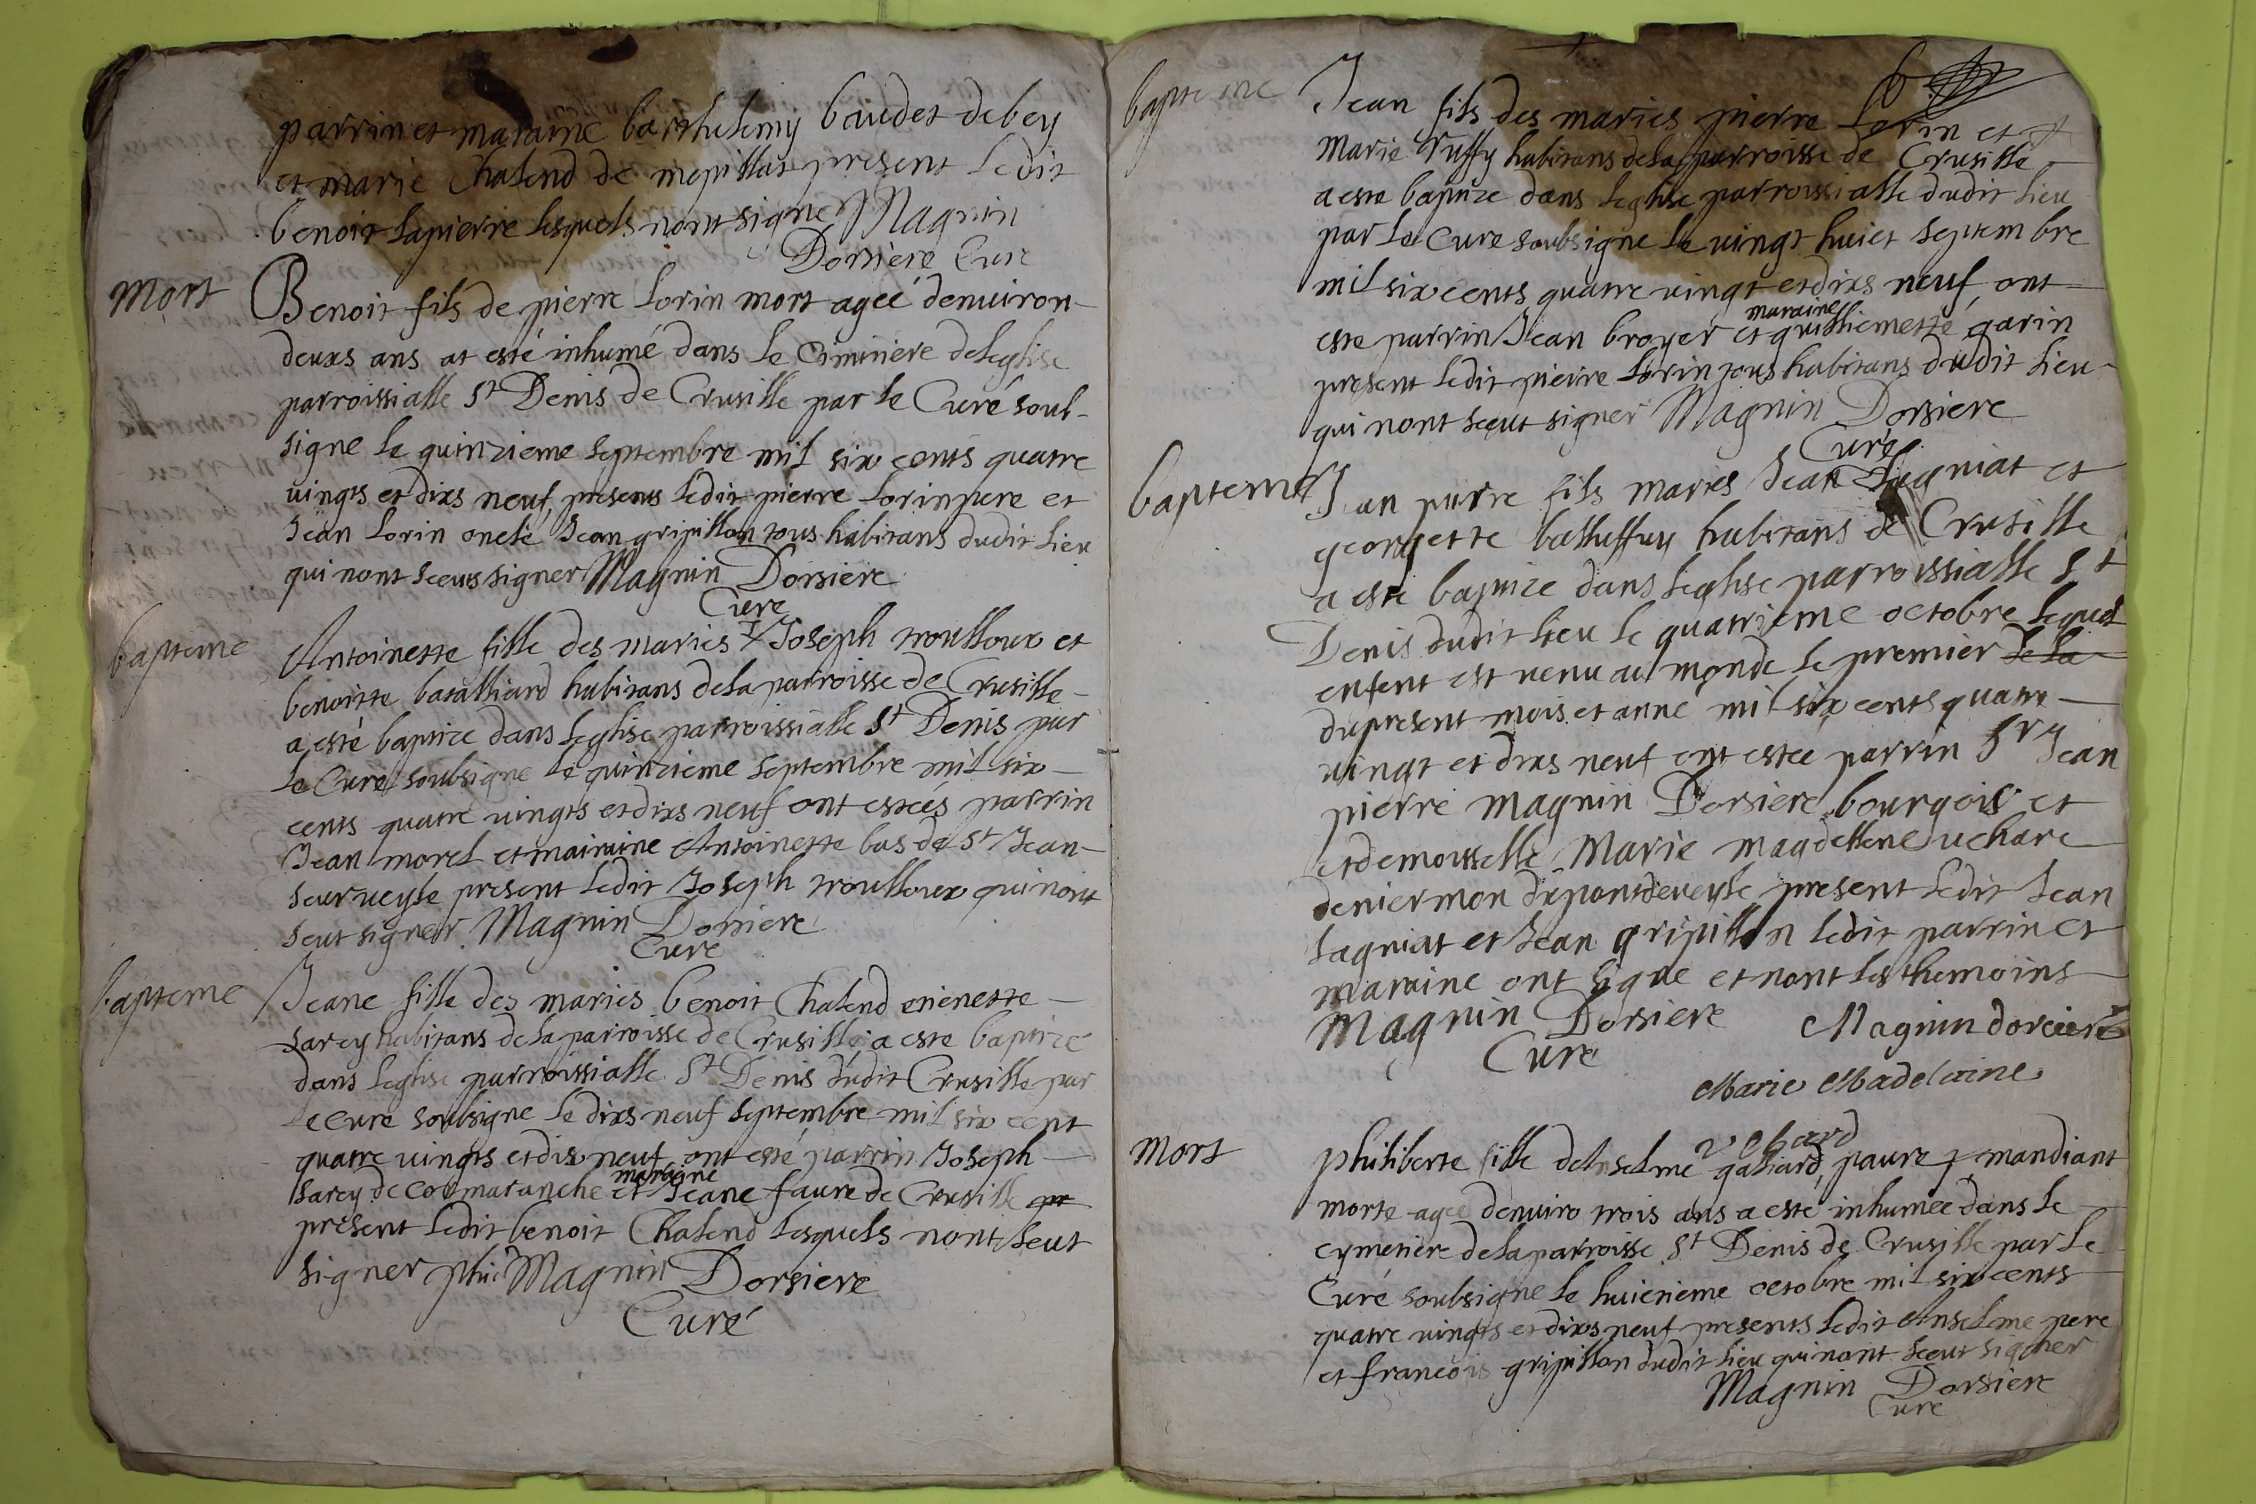 parrin et maraine barthelemy baudet de bey
et marie Chalend de mepillat present ledit
benoit lapierre lesquels nont signe Magnin
Dorsiere Cure
mort
Benoit fils de pierre Lorin mort ageé denuiron
deuxs ans at esté inhumé dans le Cimitiere de leglise
parroissialle St Denis de Crusille par le Curé soub-
signe le quinzieme septembre mil six cents quatre
uingts et dixs neuf, presents ledit pierre Lorin pere et
Jean Lorin oncle Jean gripillon tous habitans dudit lieu
qui nont sceus signer Magnin Dorsiere
Cure
bapteme
Antoinette fille des maries Joseph troulloux et
benoitte batalliard habitans de la parroisse de Crusille
a esté baptize dans leglise parroissialle St Denis par
le Curé soubsigne le quinzieme septembre mil six
cents quatre uingts et dixs neuf ont estéés parrin
Jean morel et mairaine Antoinette bas de St Jean
seur ueyle present ledit Joseph troulloux qui nont
seut signer Magnin Dorsiere
Cure
bapteme
Jeane fille des maries benoit Chalend etienette
sarcy habitans de la parroisse de Crusille a este baptizé
dans leglise parroissialle St Denis dudit Crusille par
le Cure soubsigne le dixs neuf septembre mil six cent
quatre uingts et dix neuf ont esté parrin Joseph
maraine
sarcy de Cormaranche et Jeane faure de Crusille
present ledit benoit Chalend lesquels nont seut
signer Magnin Dorsiere
Curé
bapteme
Jean fils des maries pierre Lorin et
Marie ruffy habitans de la parroisse de Crusille
a este baptize dans leglise parroissialle dudit lieu
par le Cure soubsigne le uingt huict septembre
mil six cents quatre uingt et dixs neuf, ont
maraine
este parrin Jean broyer et guilliemette garin
present ledit pierre Lorin tous habitans dudit lieu
qui nont sceut signer Magnin Dorsiere
Curé
bapteme
Jean pierre fils maries Jean Lagniat et
georgette balluffuy habitans de Crusille
a esté baptize dans leglise parroissialle St
Denis dudit lieu le quatrieme octobre lequel
enfent est uenu au monde le premier de la
du present mois et anne mil six cents quatre
uingt et dixs neuf ont estee parrin Sr Jean
pierre Magnin Dorsiere bourgois et
et demoisselle Marie magdellene uchare
deniermon de pontdeueyle present ledit Jean
Lagniat et Jean gripillon ledit parrin et
maraine ont signe et nont les themoins
Magnin Dorsiere Magnin dorciere
Curé
Marie Madelaine
uchard
mort
philiberte fille dAnselme galliard, paure mandiant
morte agee denuiro trois ans a este inhumée dans le
cymetiere de la parroisse St Denis de Crusille par le
Curé soubsigne le huictieme octobre mil six cents
quatre uingts et dixs neuf presents ledit Anselme pere
et francois gripillon dudit lieu qui nont sceut signer
Magnin Dorsiere
Cure